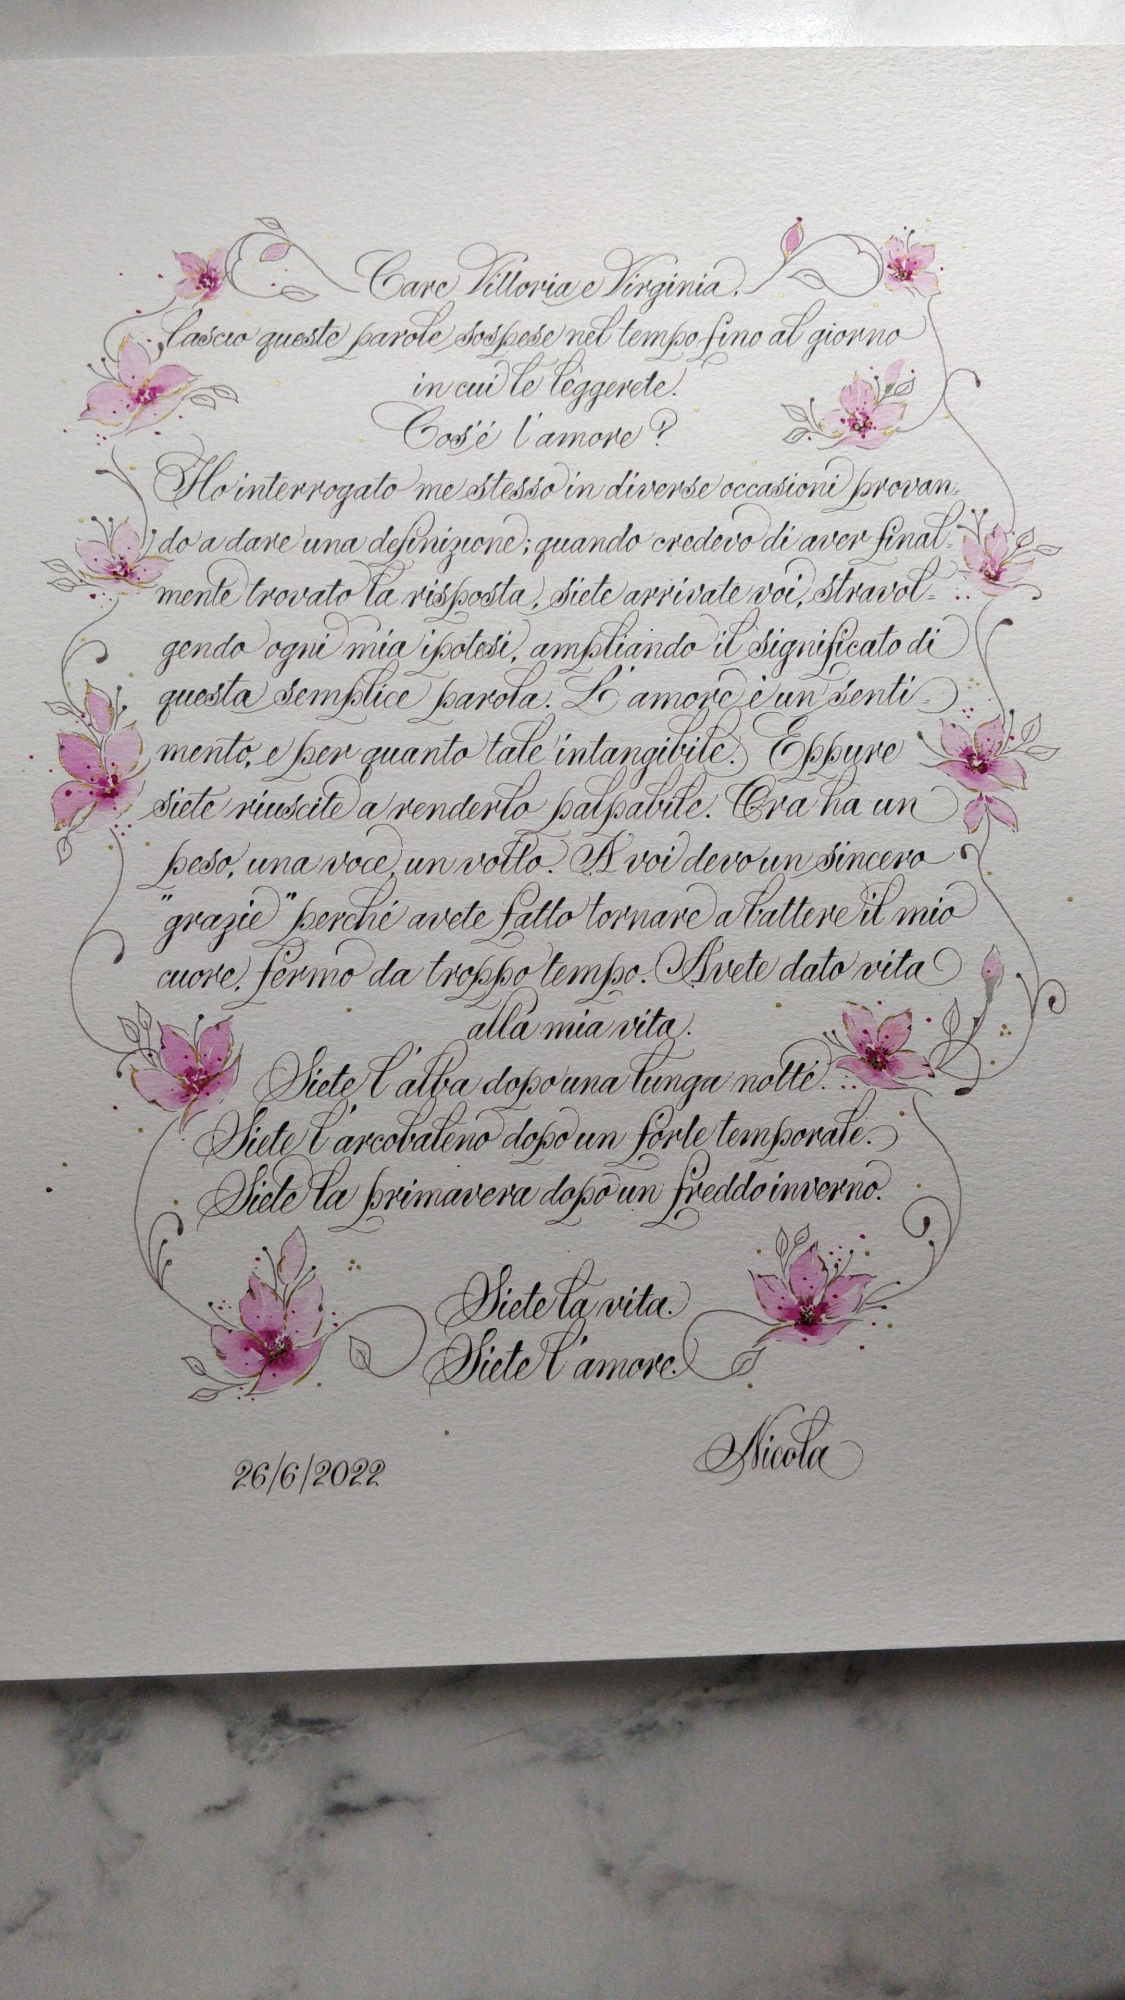 Care Vittoria e Virginia,
lascio queste parole sospese nel tempo fino al giorno
in cui le leggerete.
Cos'é l'amore?
Ho interrogato me stesso in diverse occasioni provan-
do a dare una definizione; quando credevo di aver final-
mente trovato la risposta, siete arrivate voi, stravol-
gendo ogni mia ipotesi, ampliando il significato di
questa semplice parola. L'amore è un senti-
mento, e per quanto tale intangibile. Eppure
siete riuscite a renderlo palpabile. Ora ha un
peso, una voce, un volto. A voi devo un sincero
"grazie" perché avete fatto tornare a battere il mio
cuore, fermo da troppo tempo. Avete dato vita
alla mia vita.
Siete l'alba dopo una lunga notte.
Siete l'arcobaleno dopo un forte temporale.
Siete la primavera dopo un freddo inverno.
Siete la vita.
Siete l'amore.
Nicola
26/6/2022